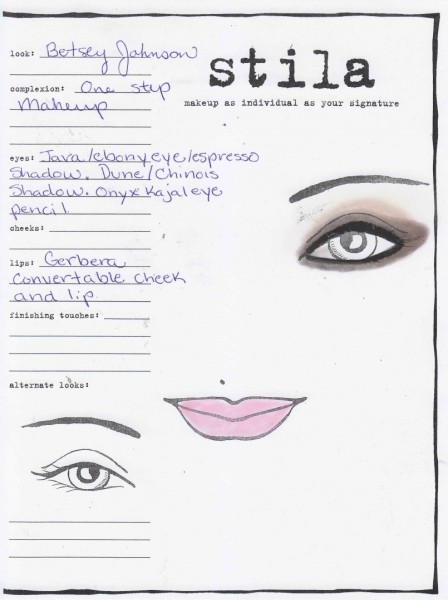 stila
makeup as individual as your signature
look: Betsey Johnson
complexion: One step
Makeup
eyes: Java/ebony eye/espresso
Shadow. Dune/Chinois
Shadow. Onyx Kajal eye
pencil
cheeks:
lips: Gerbera
Convertable cheek
and lip
finishing touches:
alternate looks: